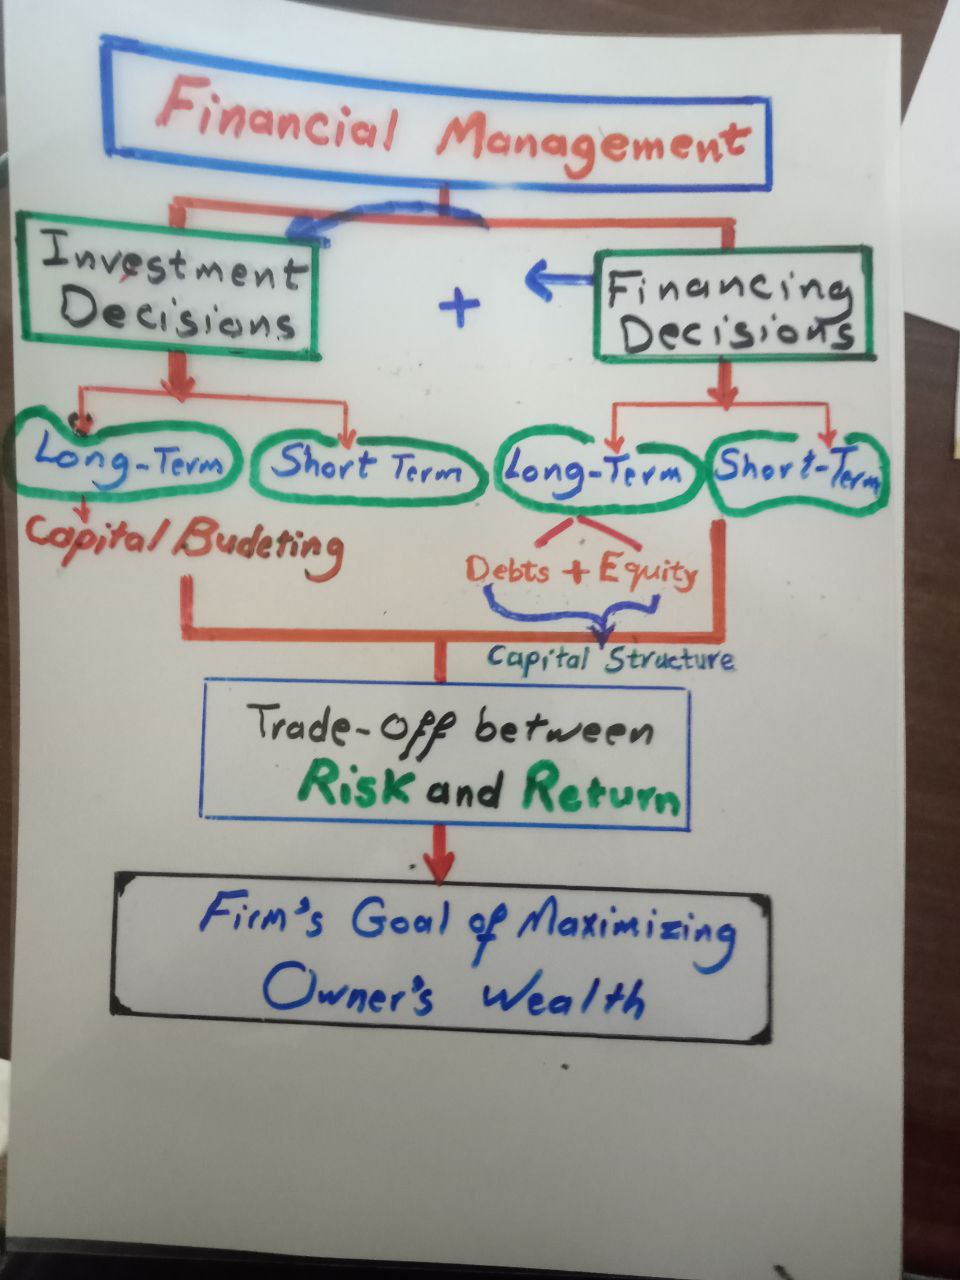 Financial Management
Investment
Decisions
+
Financing
Decisions
Long-Term
Short Term
Long-Term
Short-Term
Capital Budeting
Debts + Equity
Capital Structure
Trade-off between
Risk and Return
Firm's Goal of Maximizing
Owner's Wealth